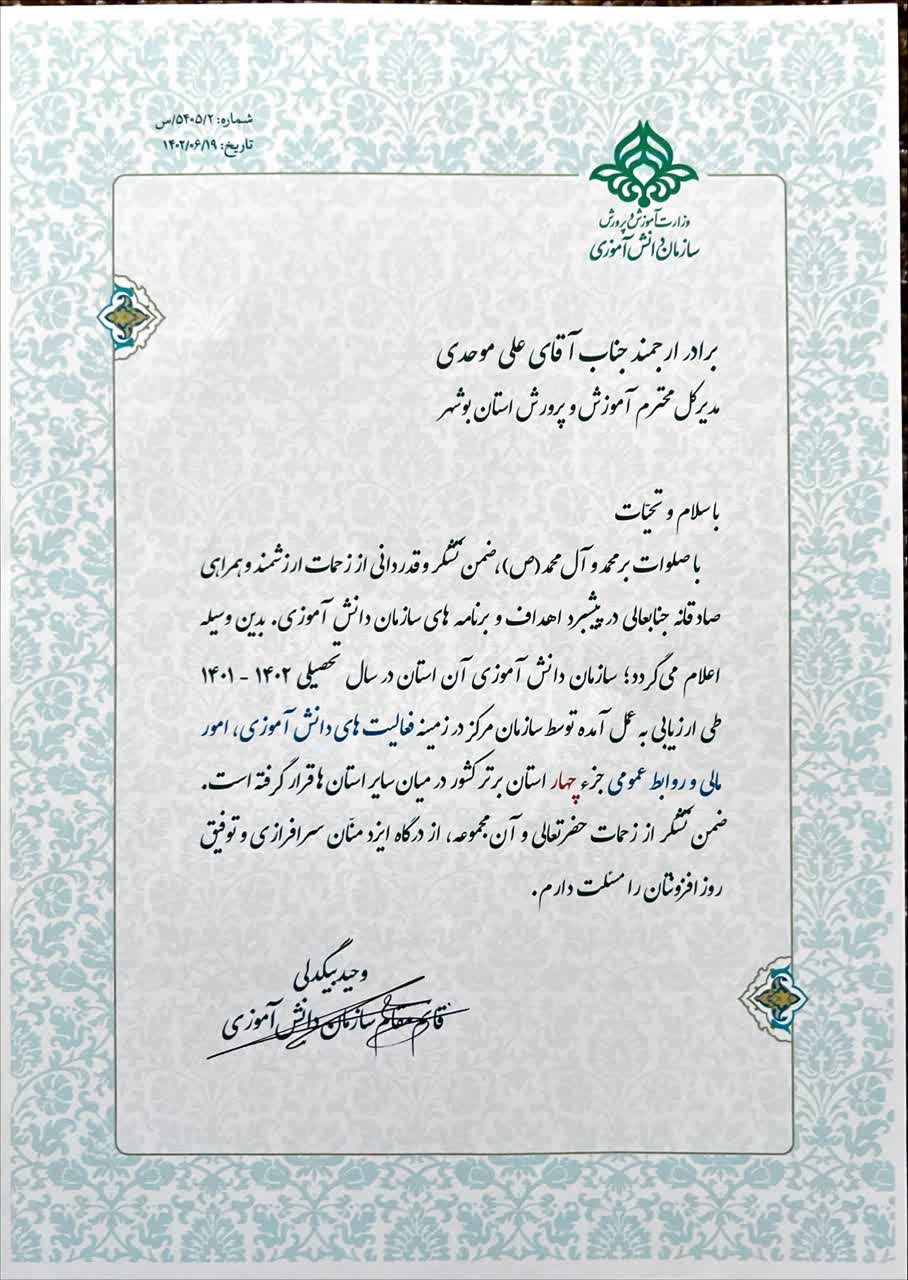 شماره: ۵۴۰۵/۲/س
تاریخ: ۱۴۰۲/۰۶/۱۹
وزارت آموزش و پرورش
سازمان دانش آموزی
برادر ارجمند جناب آقای علی موحدی
مدیرکل محترم آموزش و پرورش استان بوشهر
با سلام و تحیّات
با صلوات بر محمد و آل محمد (ص)، ضمن تشکر و قدردانی از زحمات ارزشمند و همراهی
صادقانه جنابعالی در پیشبرد اهداف و برنامه های سازمان دانش آموزی. بدین وسیله
اعلام می‌گردد؛ سازمان دانش آموزی آن استان در سال تحصیلی ۱۴۰۲ - ۱۴۰۱
طی ارزیابی به عمل آمده توسط سازمان مرکز در زمینه فعالیت های دانش آموزی، امور
مالی و روابط عمومی جزء چهار استان برتر کشور در میان سایر استان ها قرار گرفته است.
ضمن تشکر از زحمات حضرتعالی و آن مجموعه، از درگاه ایزد منّان سرافرازی و توفیق
روز افزونتان را مسئلت دارم.
وحید بیگدلی
قائم مقام سازمان دانش آموزی